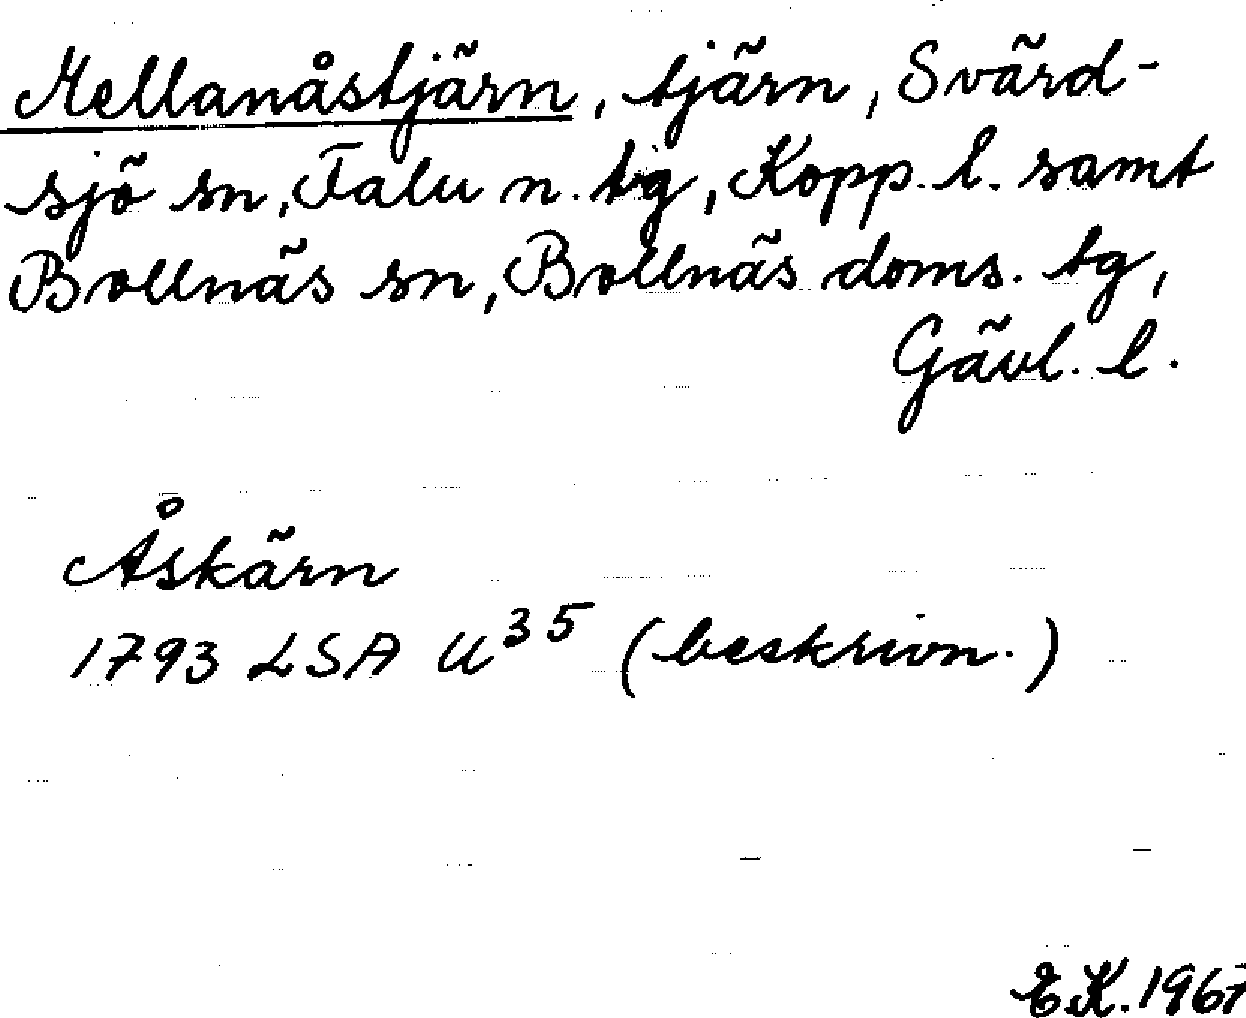 Mellanåstjärn, tjärn, Svärd-
sjö sn, Falu n. tg, Kopp. l. samt
Bollnäs sn, Bollnäs doms. tg,
Gävl. l.
Åskärn
1793 LSA U³⁵ (beskrivn.)
E.K. 1967